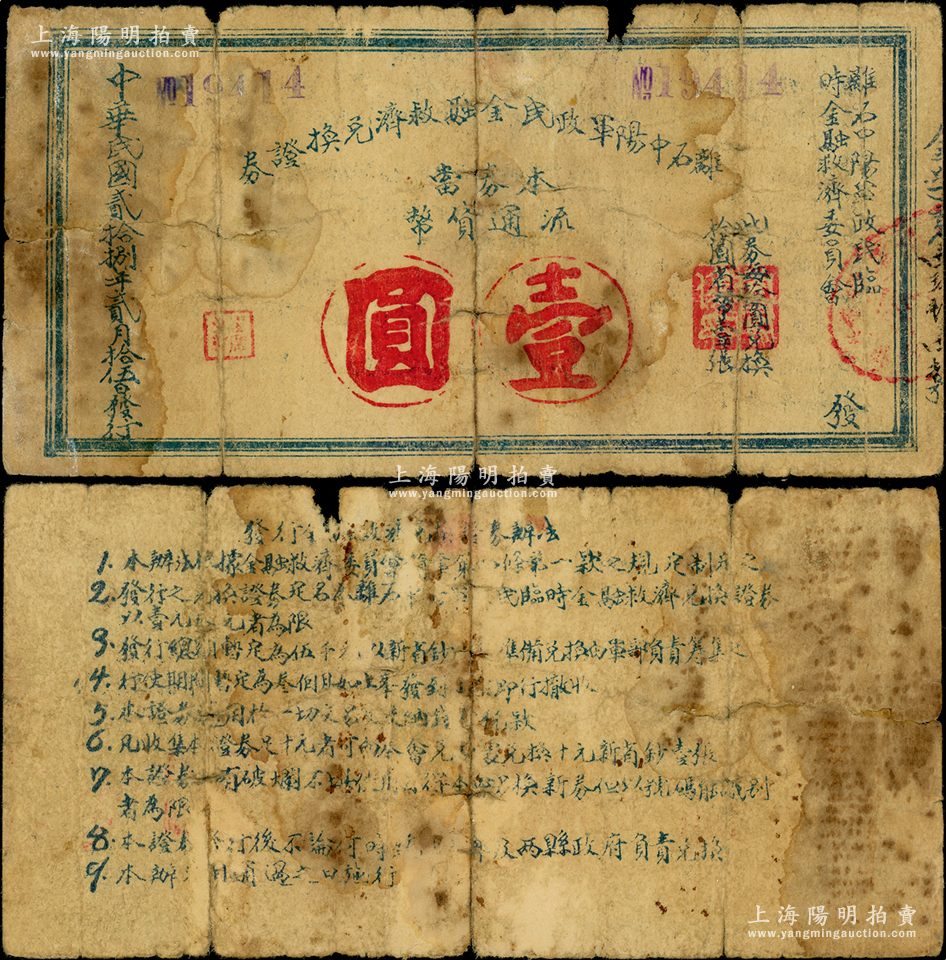 上海陽明拍賣
www.yangmingauction.com
上海陽明拍賣
www.yangmingauction.com
№19414
№19414
離石中陽軍政民金融救濟兌換證券
本券當
流通貨幣
離石中陽軍政民臨
時金融救濟委員會
發
此券每拾圓兌換
拾圓省幣壹張
壹圓
中華民國貳拾捌年貳月拾伍日發行
上海陽明拍賣
www.yangmingauction.com
發行金融救濟兌換證券辦法
1. 本辦法依據金融救濟委員會 一款之規定制定之
2. 發行之兌換證券定名為離石 民臨時金融救濟兌換證券
以壹元 元者為限
3. 發行總額暫定為伍千元以新省鈔 準備兌換由軍部負責籌集之
4. 行使期間暫定為叁個月如 發到 即行撤收
5. 本證券 用於一切交易及完納錢糧稅款
6. 凡收集本證券足十元者 會兌換十元新省鈔壹張
7. 本證券 有破爛不 換新券但以號碼能識別
者為限
8. 本證券發行後不論何時 及兩縣政府負責兌換
9. 本辦法自 過之日施行
上海陽明拍賣
www.yangmingauction.com